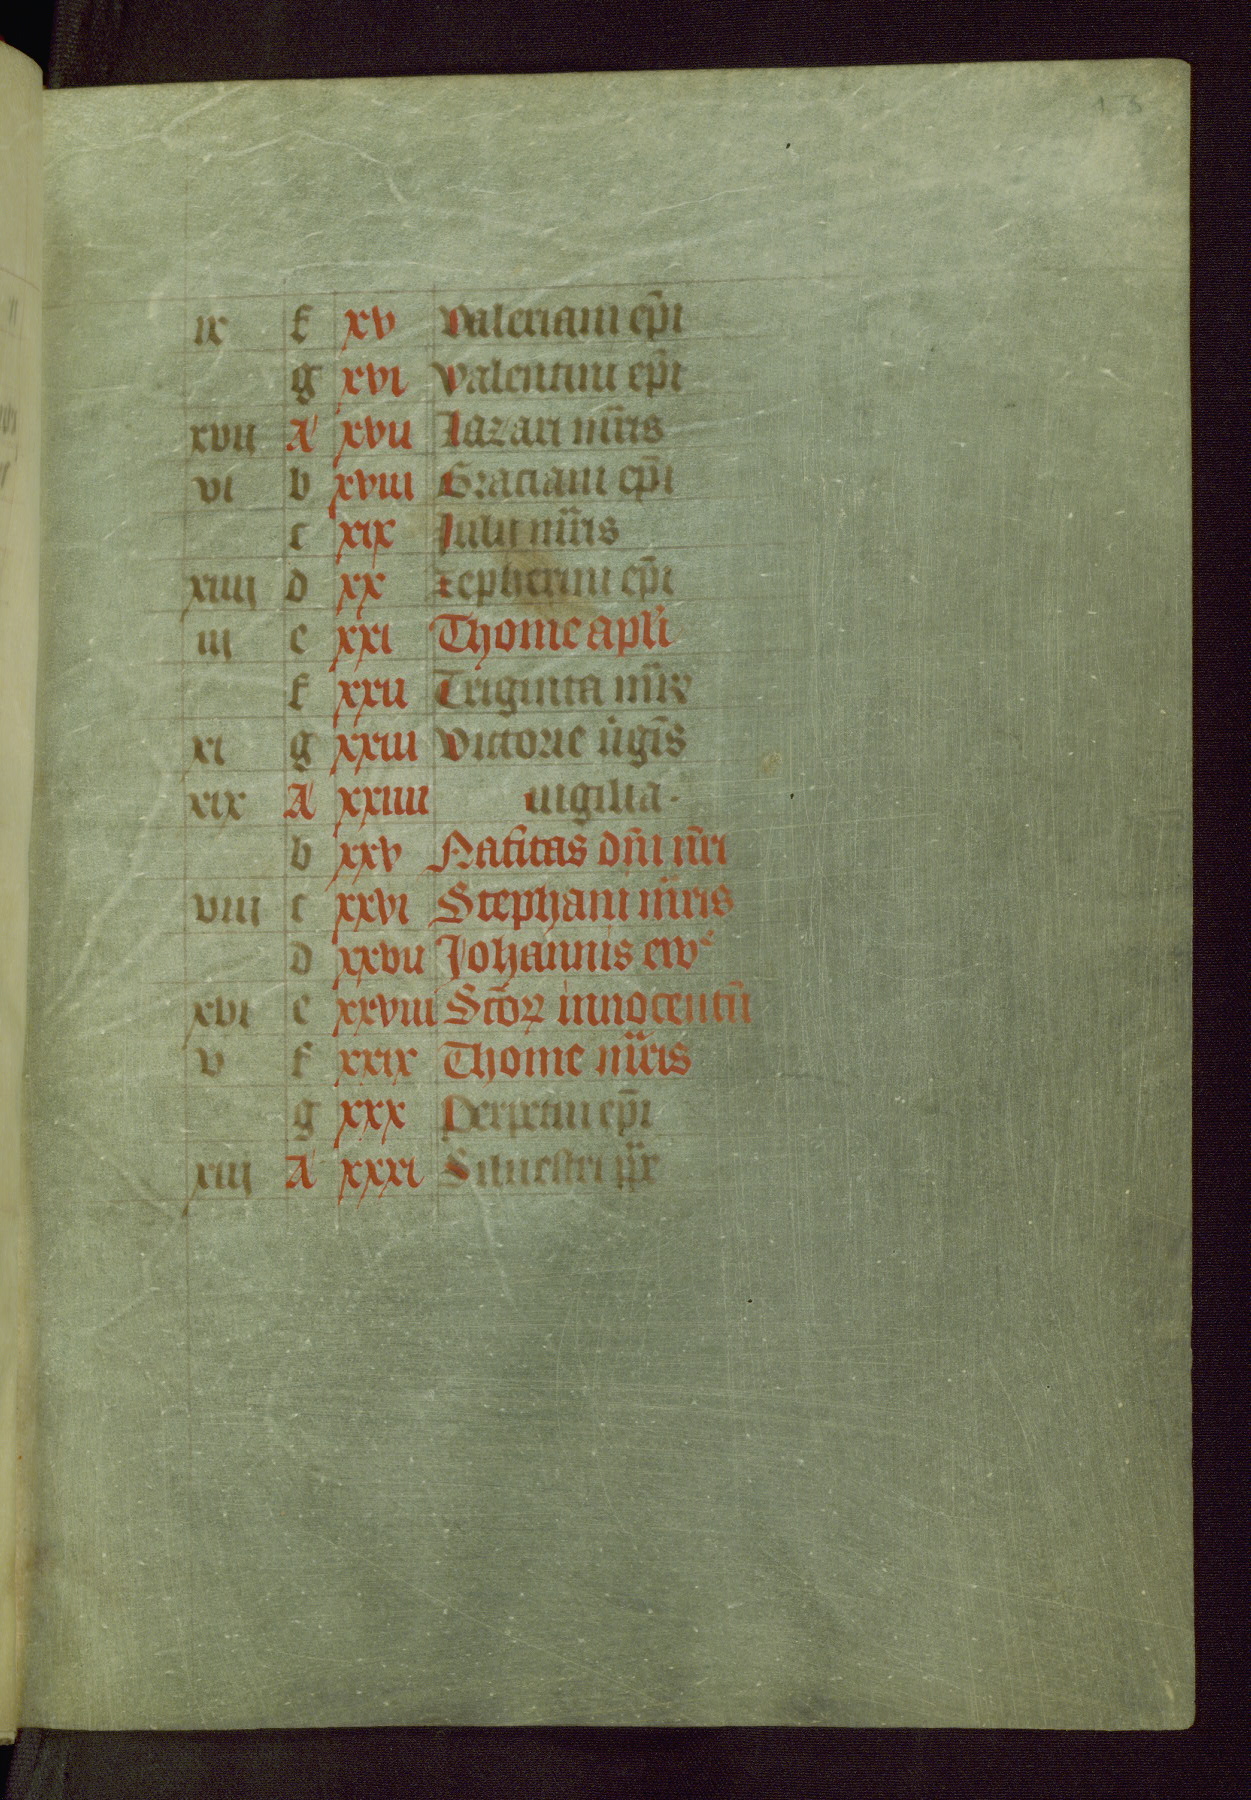 13
ix f xv Valeriani ep̄i
g xvi Valentini ep̄i
xvij A xvii Lazari mr̄is
vi b xviii Graciani ep̄i
c xix Iulij mr̄is
xiiij d xx Zepherini ep̄i
iij e xxi Thome apl̄i
f xxii Triginta mr̄
xi g xxiii Victorie ūgīs
xix A xxiiii uigilia.
b xxv Natītas dn̄i nr̄i
viij c xxvi Stephani mr̄is
d xxvii Johannis ew
xvi e xxviii Sc̄oꝝ innocentū
v f xxix Thome mr̄is
g xxx Perpetui ep̄i
xiij A xxxi Siluestri